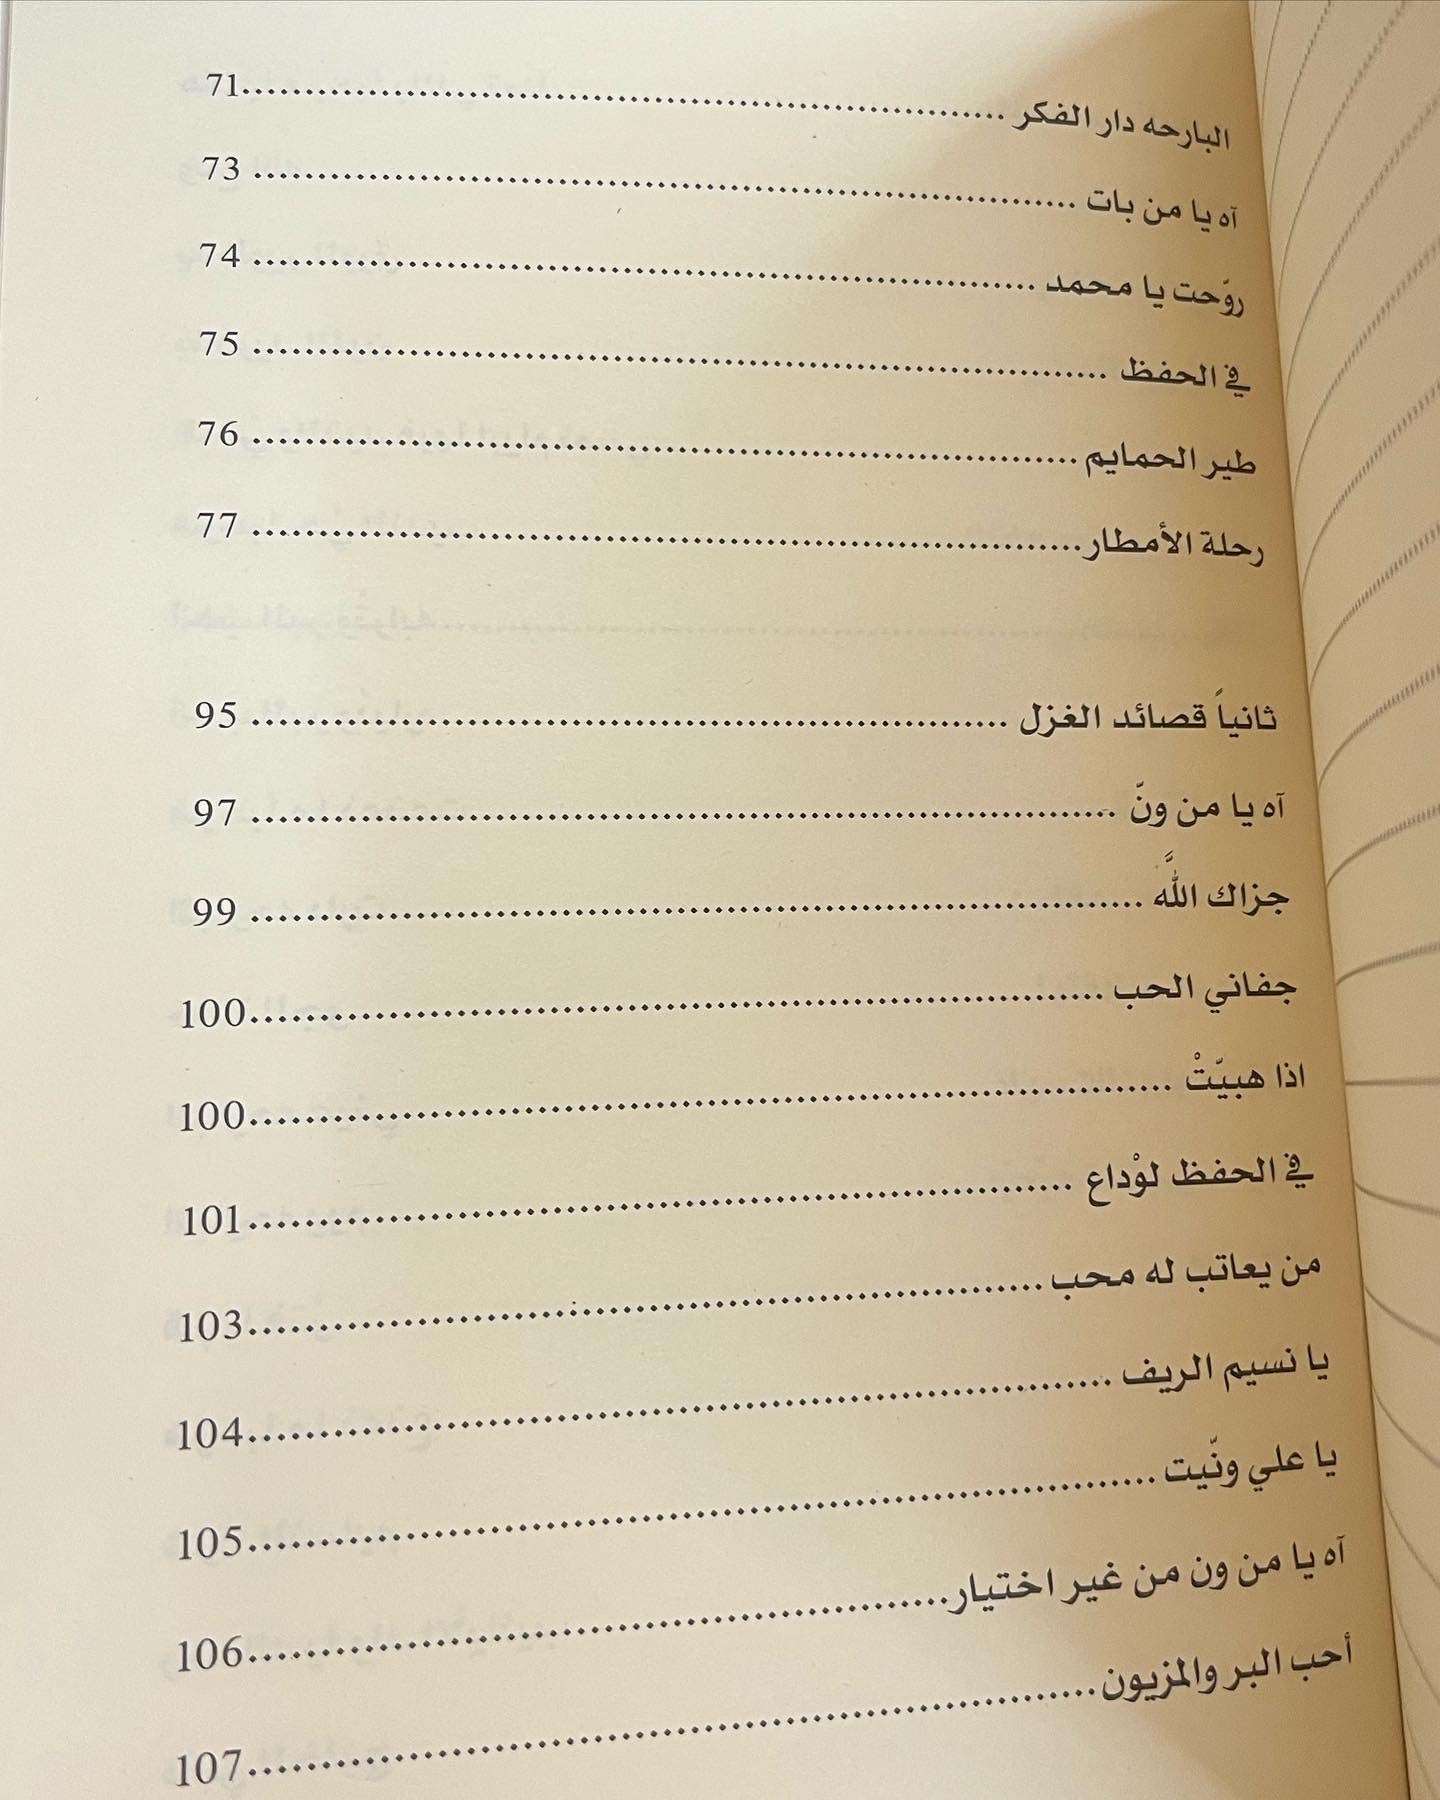 البارحه دار الفكر ........ 71
آه يا من بات ........ 73
روّحت يا محمد ........ 74
في الحفظ ........ 75
طير الحمايم ........ 76
رحلة الأمطار ........ 77
ثانياً قصائد الغزل ........ 95
آه يا من ونّ ........ 97
جزاك اللَّه ........ 99
جفاني الحب ........ 100
اذا هبيّتْ ........ 100
في الحفظ لوْداع ........ 101
من يعاتب له محب ........ 103
يا نسيم الريف ........ 104
يا علي ونّيت ........ 105
آه يا من ون من غير اختيار ........ 106
أحب البر والمزيون ........ 107